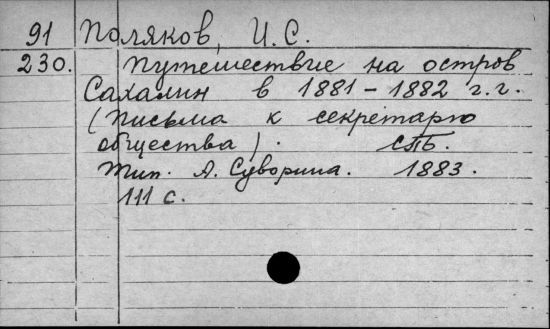 91 Поляков, И. С.
230. Путешествие на остров
Сахалин в 1881 - 1882 г.г.
(Письма к секретарю
общества). СПБ.
Тип. А. Суворина. 1883.
111 с.